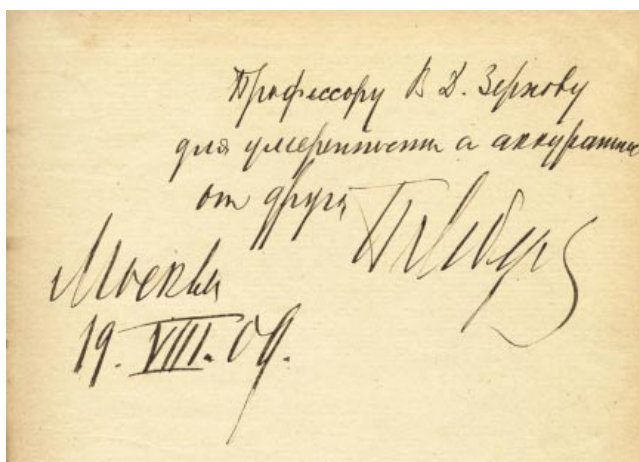 Профессору В Д. Зернову
для умеренности и аккуратн
от друга
П Лебед
Москва
19. VIII. 09.